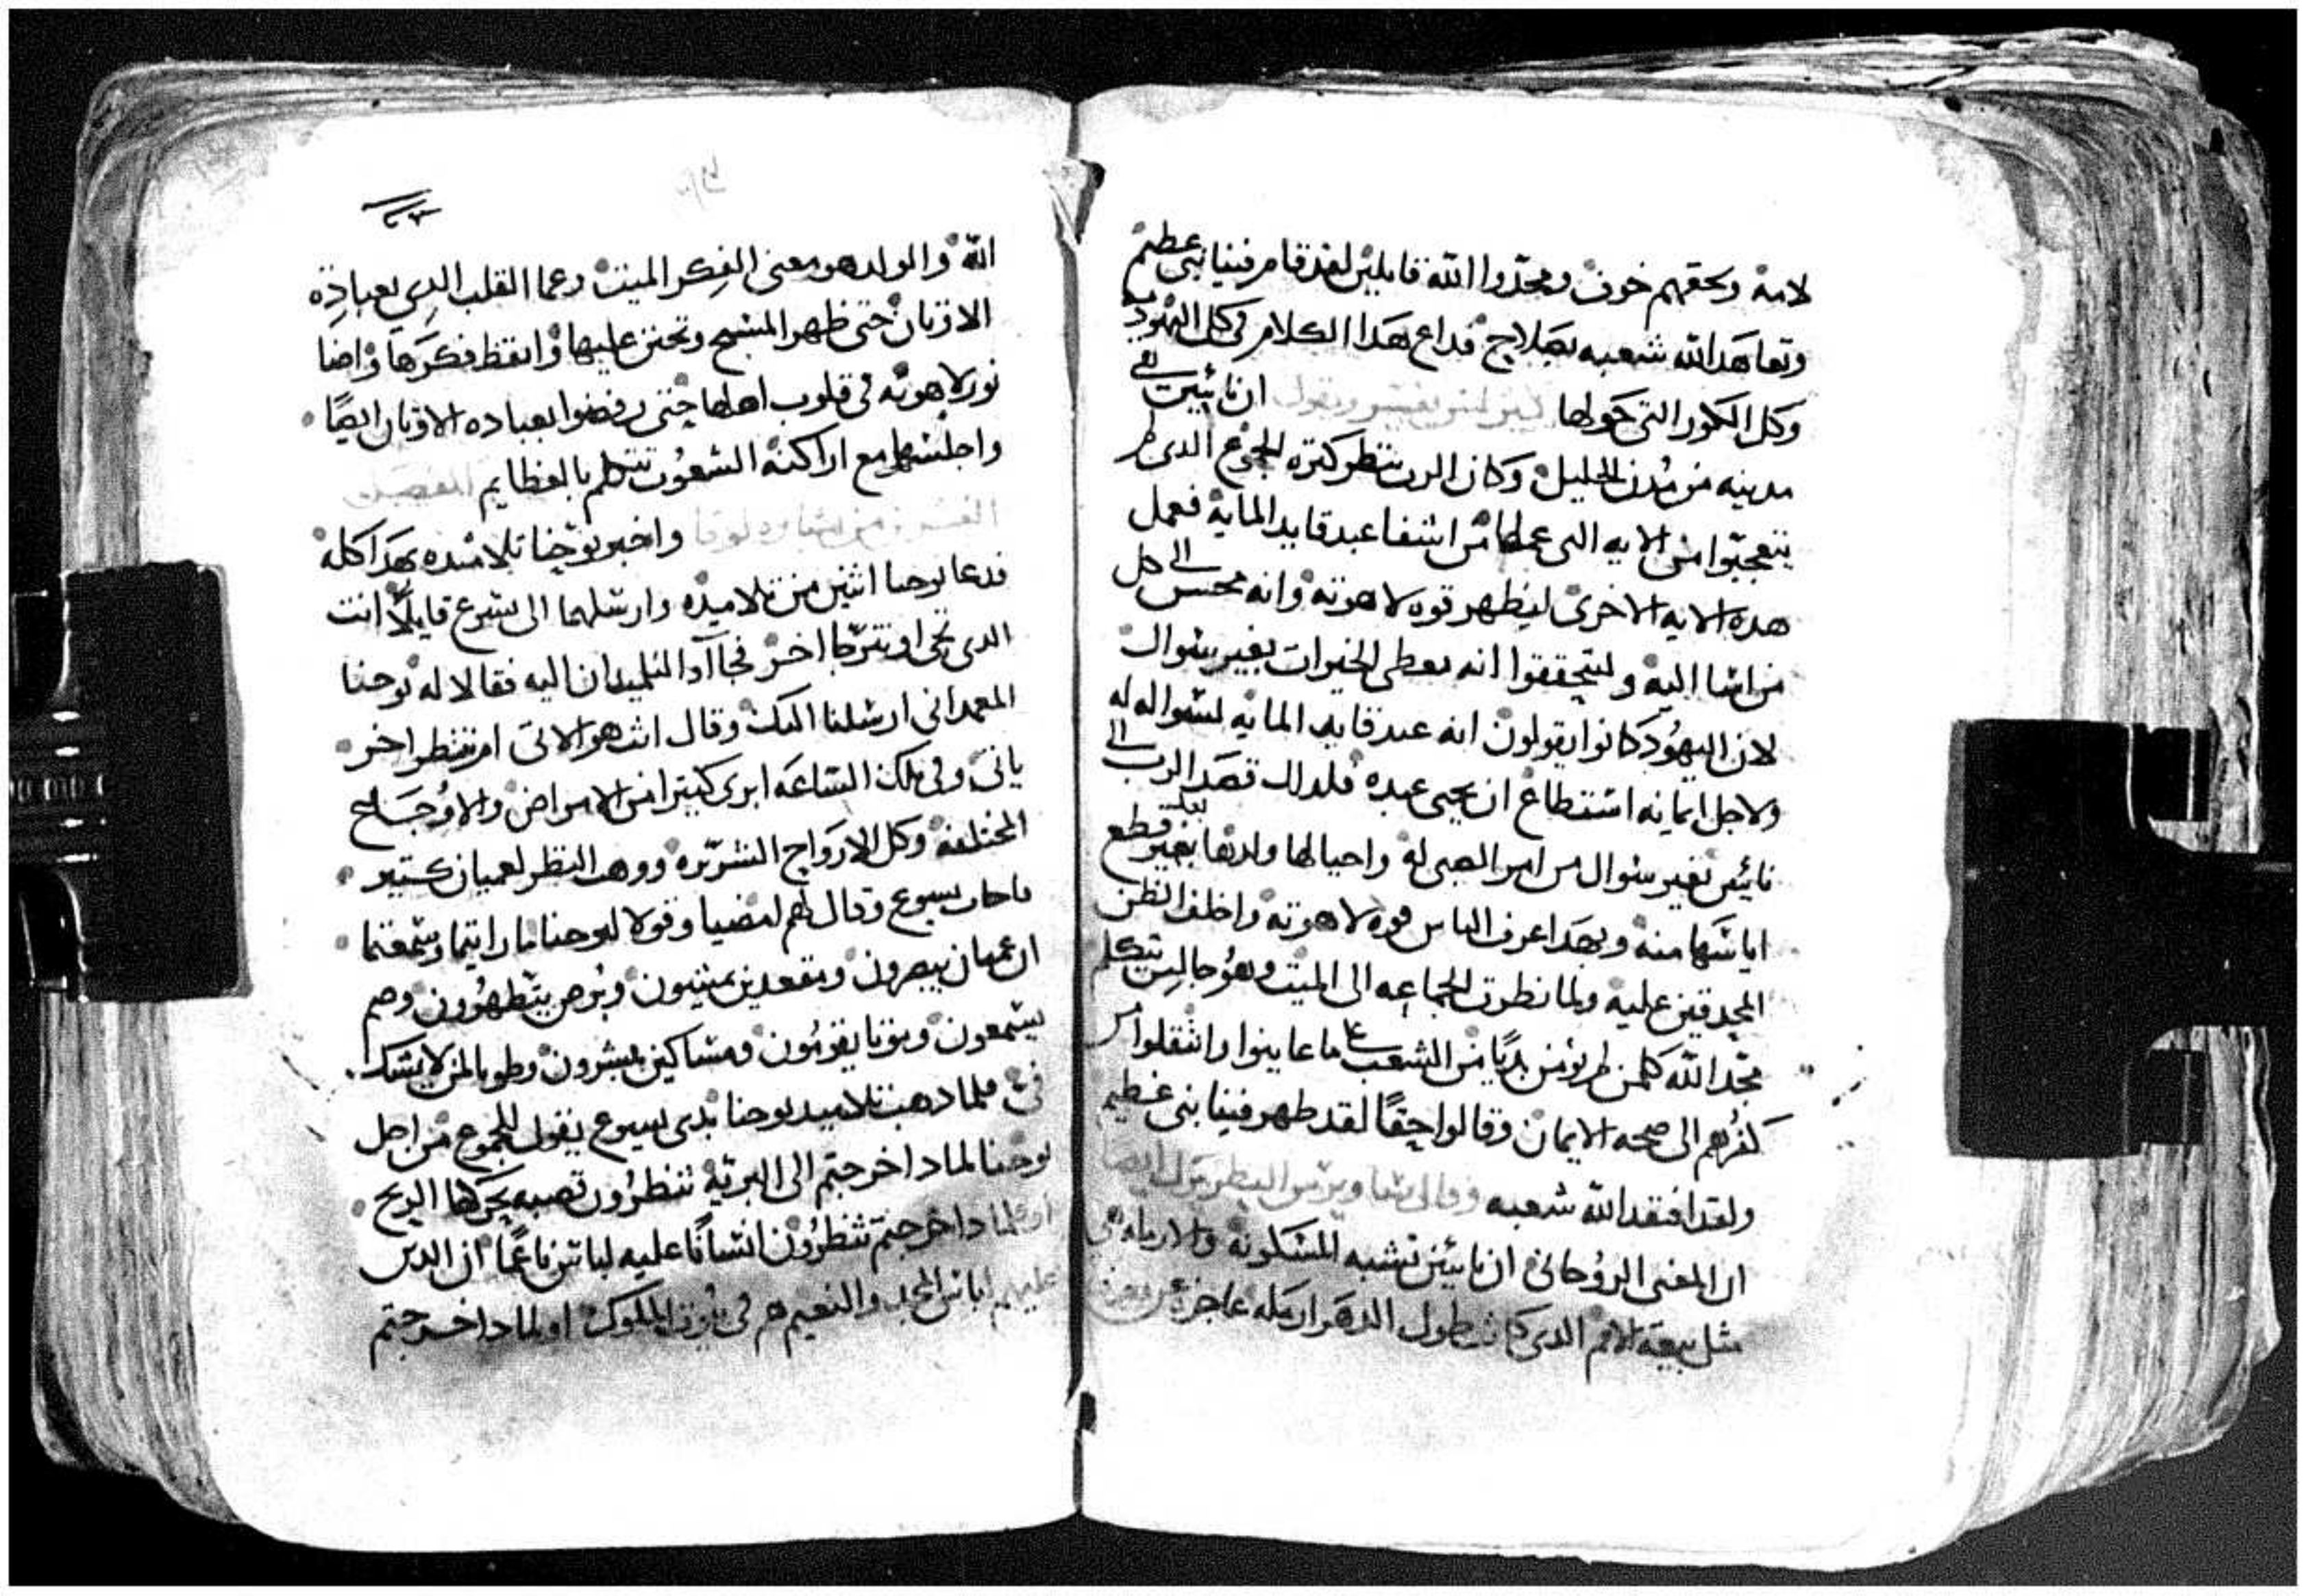 لامه ولحقهم خوف ومجدوا الله قايلين لقد قام فينا نبي عظيم
وتعاهد الله شعبه بصلاح فداع هدا الكلام في كل اليهوديه
وكل الكور التي حولها ان نايين هي
مدينه من مدن الجليل وكان الرب ينتظر كتره الجموع الدى لم
يتعجبوا من الايه التي عملها من اشفا عبد قايد المايه فعمل
هده الايه الاخرى ليظهر قوه لاهوته وانه محسن الى كل
من اسا اليه وليتحققوا انه يعطي الخيرات بغير سوال
لان اليهود كانوا يقولون انه عبد قايد المايه لسواله له
ولاجل ايمانه استطاع ان يحيي عبده فلدلك قصد الرب الى
نايين بغير سوال من ام الصبي له واحيا لها ولدها بغير قطع
اياسها منه وبهدا عرف الناس قوه لاهوته واخلف الظن
المحدقين عليه ولما نظرت الجماعه الى الميت وهو جالس يتكلم
مجد الله كلمن لم يومن بديا من الشعب على ما عاينوا وانتقلوا من
كفرهم الى صحه الايمان وقالوا حقا لقد ظهر فينا نبي عظيم
ولقد افتقد الله شعبه وقال ساويرس البطريرك ايضا
ان المعنى الروحاني ان نايين تشبه المسكونه والارمله هي
مثل بيعه الامم الدى كانت طول الدهر ارمله عاجزه
الله والولد هو معنى الفكر الميت وعما القلب الدي بعباده
الاوتان حتى ظهر المسيح وتحنن عليها وايقظ فكرها واضا
نور لاهوته في قلوب اهلها حتى رفضوا بعباده الاوتان ايضا
واجلسها مع اراكنه الشعوب تتكلم بالعظايم الفصل
من بشاره لوقا واخبر يوحنا تلاميده بهدا كله
فدعا يوحنا اثنين من تلاميده وارسلهما الى يسوع قايلا انت
الدى تجى او نترجا اخر فجاآ التلميدان اليه فقالا له يوحنا
المعمداني ارسلنا اليك وقال انت هو الاتي ام ننتظر اخر
ياتي وفي تلك الساعه ابرى كتيرا من الامراض والاوجاع
المختلفه وكل الارواح الشريره ووهب النظر لعميان كتير
فاجاب يسوع وقال لهم امضيا وقولا ليوحنا ما رايتما وسمعتما
ان عميان يبصرون ومقعدين يمشون وبرص يتطهرون وصم
يسمعون وموتا يقومون ومساكين يبشرون وطوبا لمن لا يشك
في فلما دهب تلاميد يوحنا بدى يسوع يقول للجموع من اجل
يوحنا لمادا خرجتم الى البريه تنظرون قصبه يحركها الريح
او لمادا خرجتم تنظرون انسانا عليه لباس ناعما ان الدين
عليهم لباس المجد والنعيم هم في بيوت الملوك او لمادا خرجتم